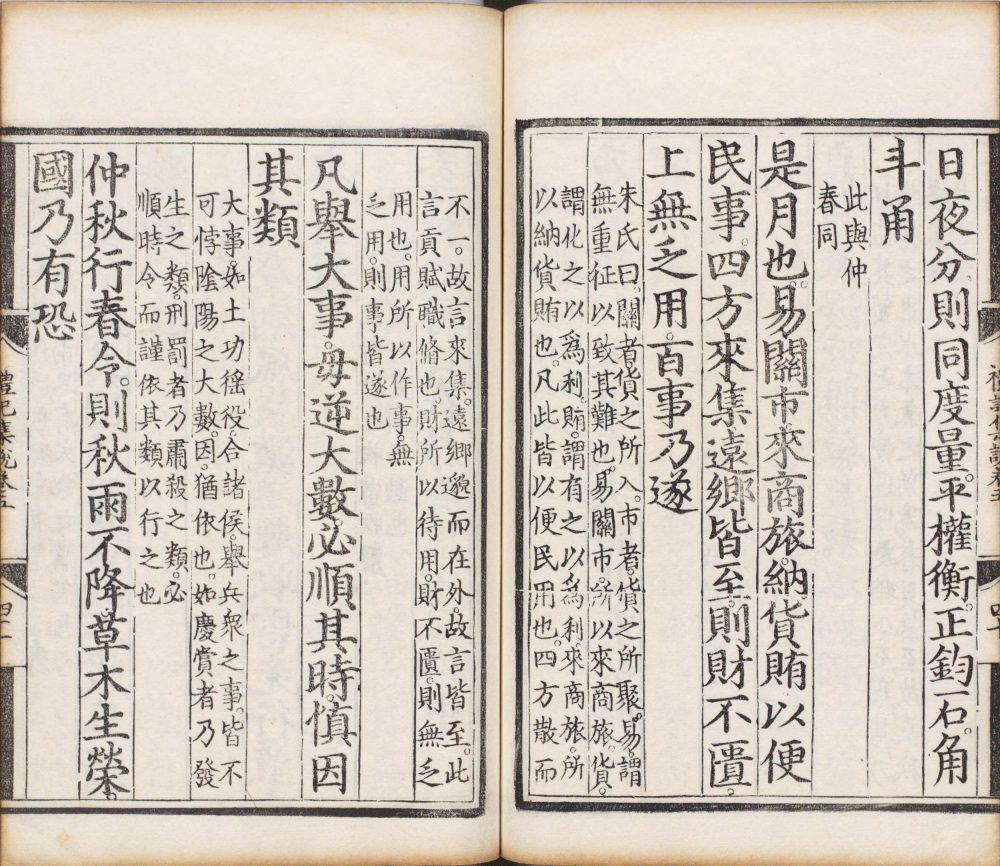 日夜分則同度量。平權衡。正鈞石。角
斗甬
此與仲
春同
是月也。易關市。來商旅。納貨賄以便
民事。四方來集。遠鄉皆至。則財不匱。
上無乏用。百事乃遂
朱氏曰。關者貨之所入。市者貨之所聚。易。謂
無重征以致其難也。易關市。所以來商旅。貨。
謂化之以爲利。賄。謂有之以爲利。來商旅。所
以納貨賄也。凡此皆以便民用也。四方散而
不一。故言來集。遠鄉邈而在外。故言皆至。此
言貢賦職脩也。財所以待用。財不匱。則無乏
用也。用所以作事。無
乏用。則事皆遂也
凡舉大事。毋逆大數。必順其時。慎因
其類
大事如土功徭役。合諸侯。舉兵衆之事。皆不
可悖陰陽之大數。因。猶依也。如慶賞者乃發
生之類。刑罰者乃肅殺之類。必
順時令而謹依其類以行之也
仲秋行春令。則秋雨不降。草木生榮。
國乃有恐
禮記集說卷三
四十一